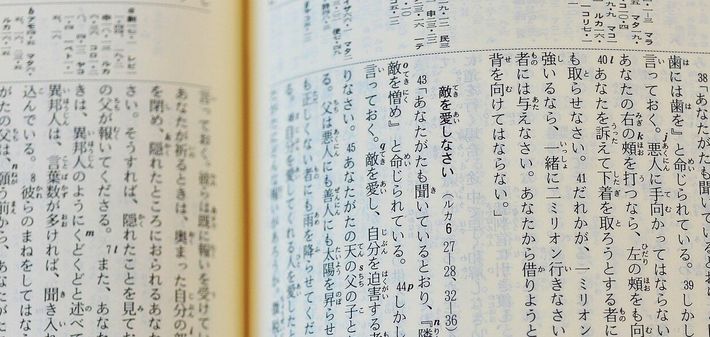 38「あなたがたも聞いているとおり、『
歯には歯を』と命じられている。39しかし
言っておく。悪人に手向かってはならない
あなたの右の頬を打つなら、左の頬をも向
40あなたを訴えて下着を取ろうとする者に
も取らせなさい。41だれかが、一ミリオン
強いるなら、一緒に二ミリオン行きなさい
者には与えなさい。あなたから借りようと
背を向けてはならない。」
敵を愛しなさい(ルカ6 27―28、32―36)
43「あなたがたも聞いているとおり、『隣
敵を憎め』と命じられている。44しかし
言っておく。敵を愛し、自分を迫害する者
りなさい。45あなたがたの天の父の子と
る。父は悪人にも善人にも太陽を昇らせ
も正しくない者にも雨を降らせてくだ
46自分を愛してくれる人を愛したと
言っておく。彼らは既に報いを受けてい
あなたが祈るときは、奥まった自分の部
を閉め、隠れたところにおられるあな
さい。そうすれば、隠れたことを見てお
の父が報いてくださる。7また、あなた
きは、異邦人のようにくどくどと述べて
異邦人は、言葉数が多ければ、聞き入れ
込んでいる。8彼らのまねをしてはなら
がたの父は、願う前から、あなたが